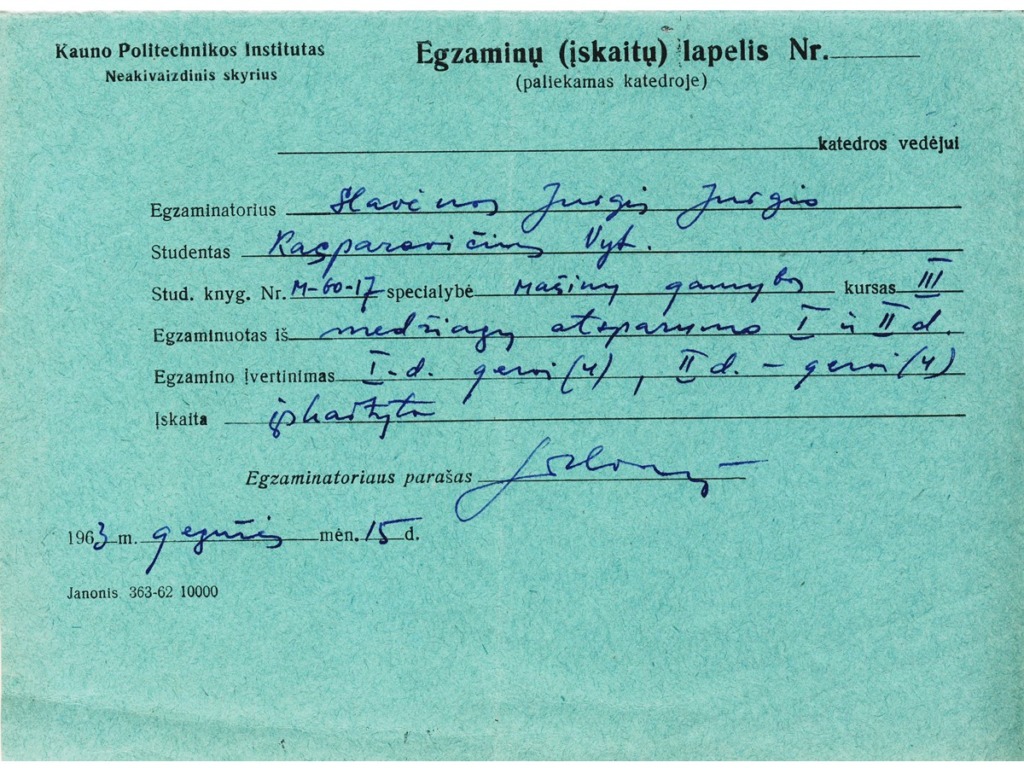 Kauno Politechnikos Institutas
Neakivaizdinis skyrius
Egzaminų (įskaitų) lapelis Nr.
(paliekamas katedroje)
katedros vedėjui
Egzaminatorius Slavėnas Jurgis Jurgio
Studentas Kasparavičius Vyt.
Stud. knyg. Nr. M-60-17 specialybė mašinų gamybos kursas III
Egzaminuotas iš medžiagų atsparumo I ir II d.
Egzamino įvertinimas I-d. gerai (4), II d. - gerai (4)
Įskaita įskaityta
Egzaminatoriaus parašas
1963 m. gegužės mėn. 15 d.
Janonis 363-62 10000